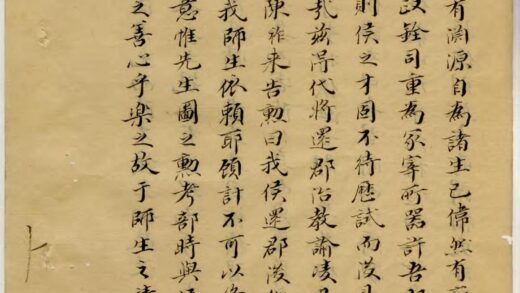 有淵源自為諸生已偉然有
銓司重為冢宰所器許吾
則侯之才固不待歷試而後見
茲得代將還郡治教諭凌
陳祚来告勲曰我侯還郡後
我師生依賴耶顧計不可以
意惟先生圖之勲考部時與
之善心乎樂之故于師生之